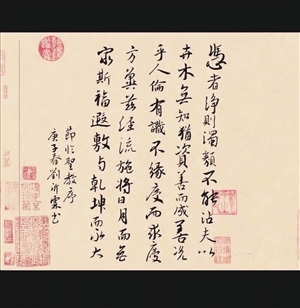 憑者淨則濁類不能沾夫以
卉木無知猶資善而成善況
乎人倫有識不緣慶而求慶
方冀茲經流施將日月而無
窮斯福遐敷與乾坤而永大
節臨聖教序
庚子春劉